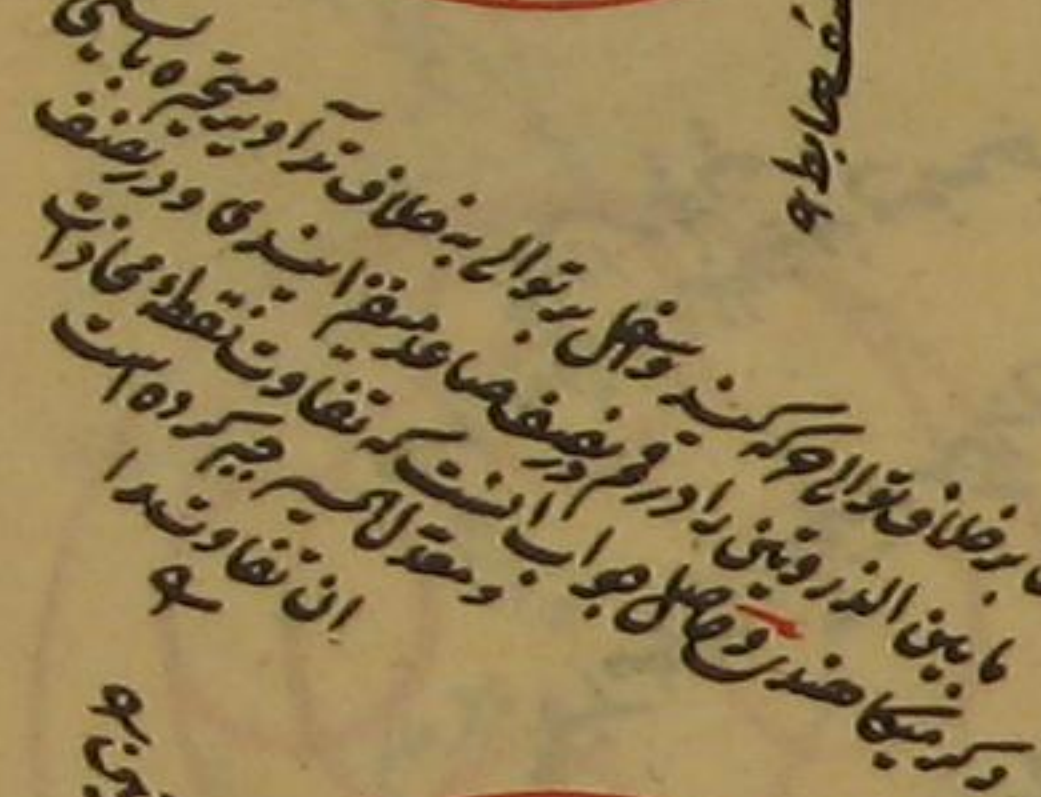 بر خلاف توالی حرکه کنند و اسفل بر توالی به خلاف تداویر متحیره
ما بین الذروتین را در قمر در نصف صاعد میفزایند و در نصف
دکر میکاهند و حاصل جواب انست که تفاوت نقطه محاذات
و معدل المسیر جبر کرده است
ان تفاوت را